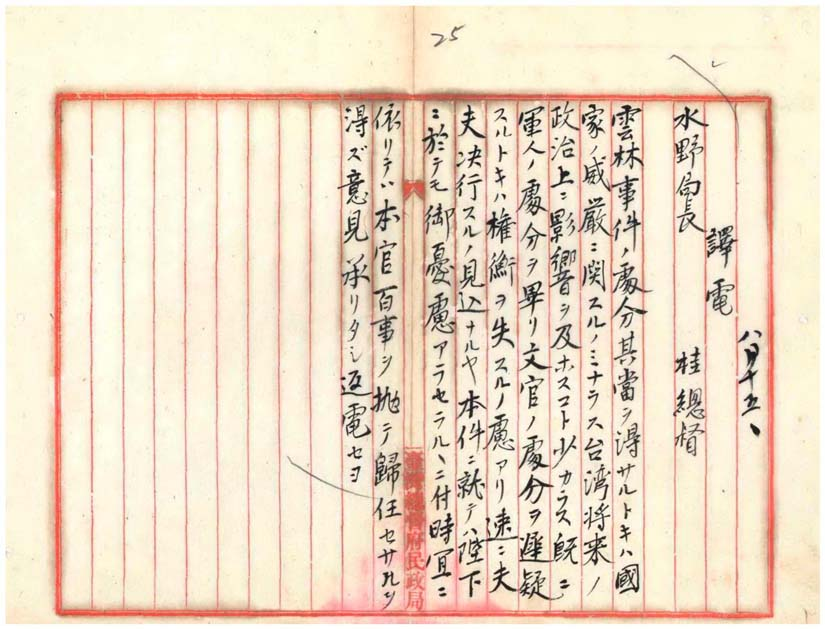 25
八月十五、
譯電
桂總督
水野局長
雲林事件ノ處分其當ヲ得サルトキハ國
家ノ威厳ニ関スルノミナラス台湾将来ノ
政治上ニ影響ヲ及ホスコト少カラス既ニ
軍人ノ處分ヲ畢リ文官ノ處分ヲ遲疑
スルトキハ権衡ヲ失スルノ慮アリ速ニ夫
夫決行スルノ見込ナルヤ本件ニ就テハ陛下
ニ於テモ御憂慮アラセラルヽニ付時冝ニ
依リテハ本官百事ヲ抛テ歸任セサルヲ
得ズ意見承リタシ返電セヨ
臺灣總督府民政局